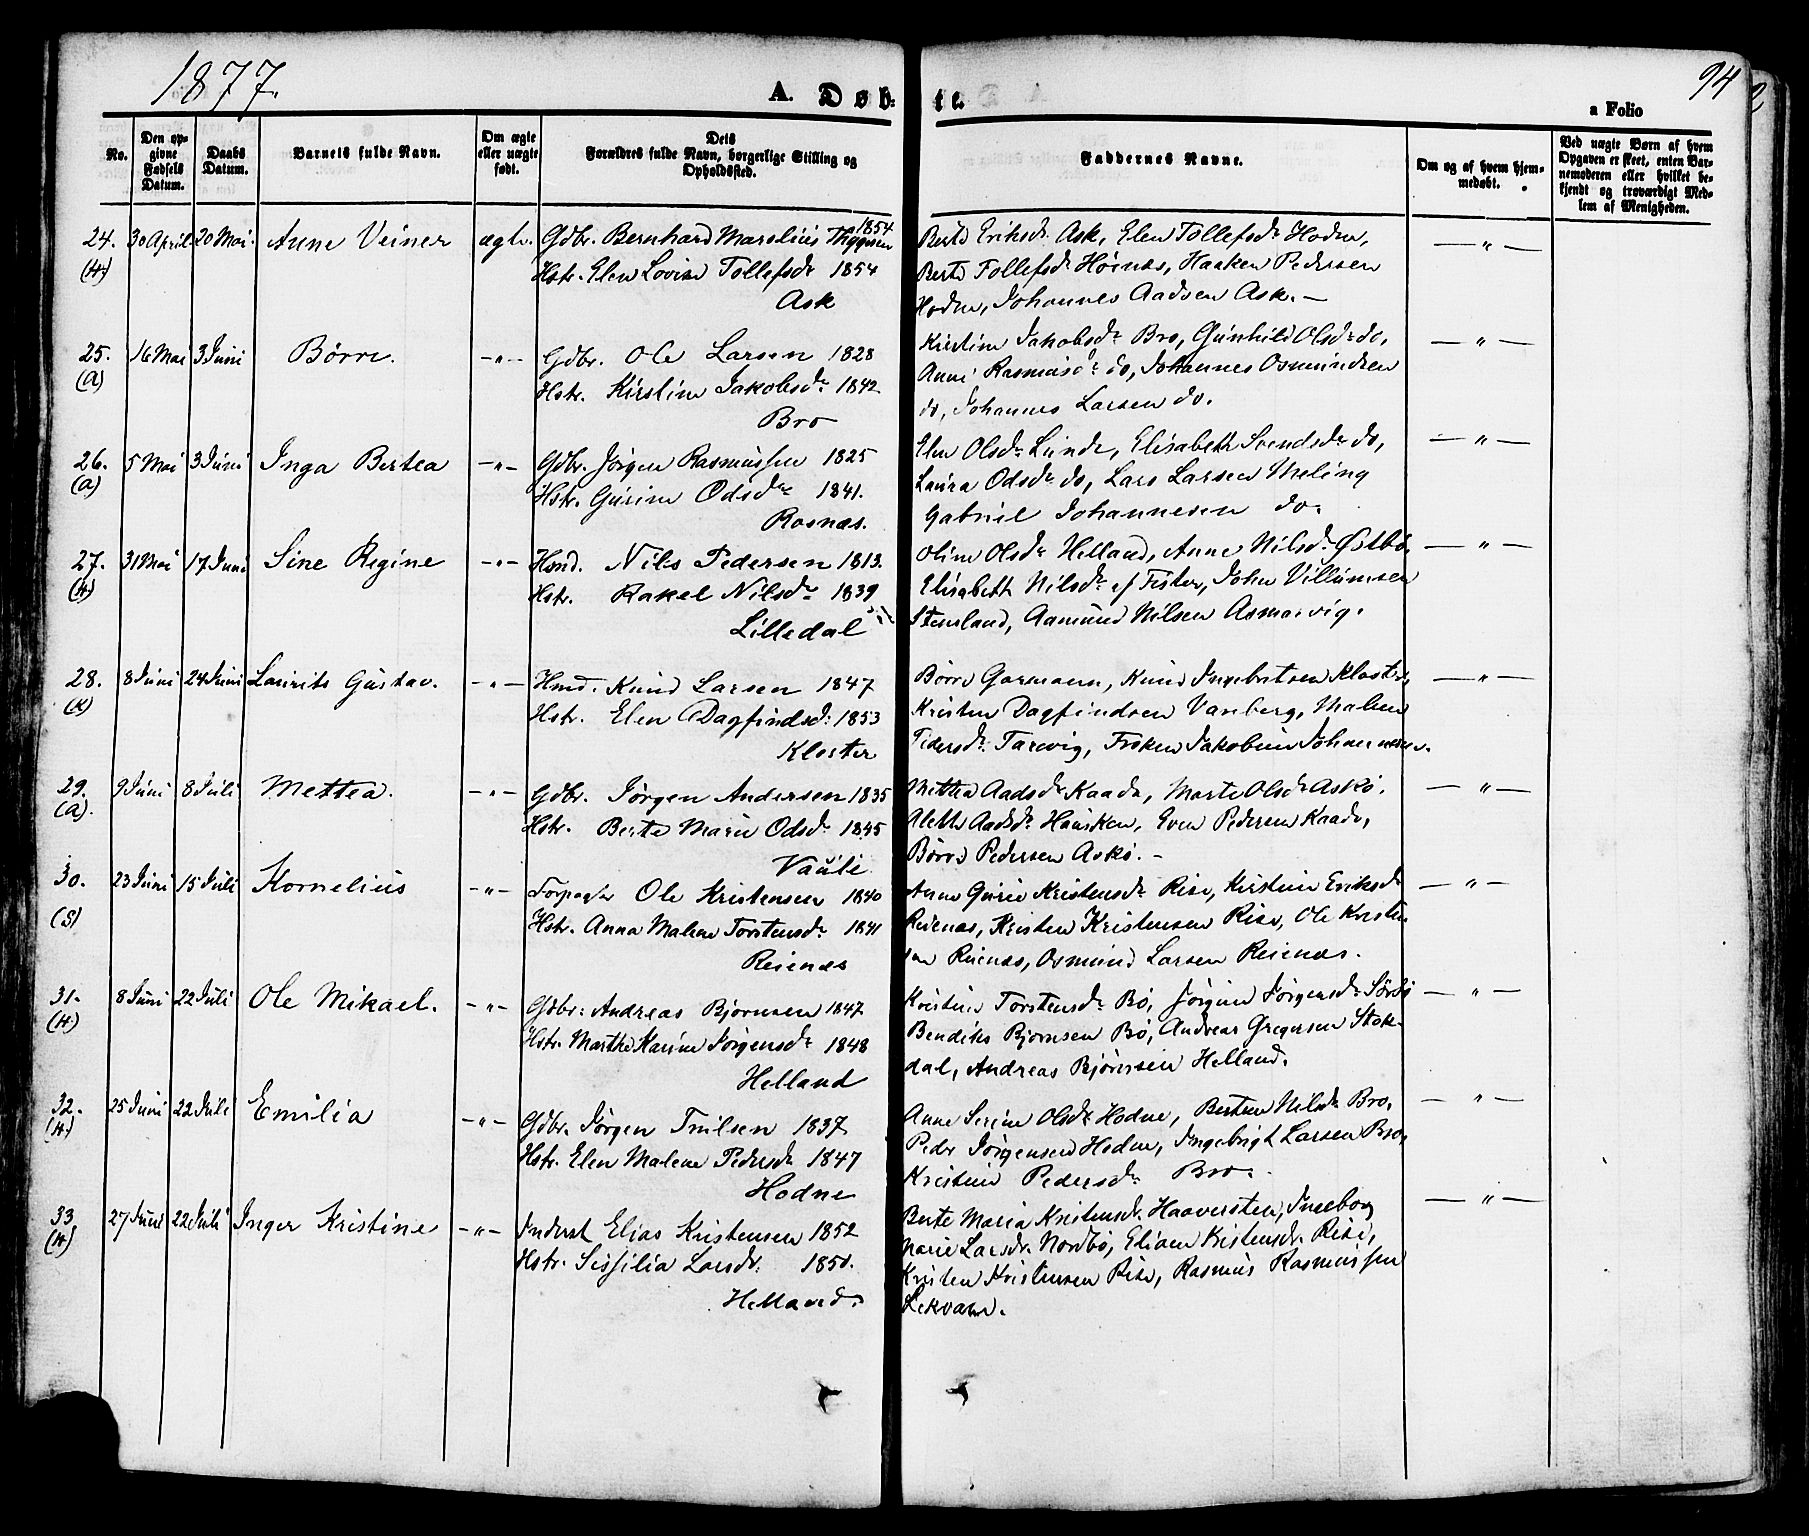 1877.
A. Døbte.
94
a Folio
No.
Den opgivne Fødsels Datum.
Daabs Datum.
Barnets fulde Navn.
Om ægte eller uægte født.
Dets Forældres fulde Navn, borgerlige Stilling og Opholdssted.
Faddernes Navne.
Om og af hvem hjemmedøbt.
Ved uægte Børn af hvem Opgaven er skeet, enten Barnemoderen eller hvilket bekjendt og troværdigt Medlem af Menigheden.
24. 30 April 20 Mai. Anne Veiner ægte. Gdbr. Bernhard Marelius Thygesen 1854
(H) Hstr. Elen Lovise Tollefsdr 1854
Ask
Berte Eriksdr Ask, Elen Tollefsdr Hodne,
Berte Tollefsdr Høines, Haaken Pedersen
Hodne, Johannes Aadsen Ask. —
— „ —
25. 16 Mai 3 Juni Børre. -„- Gdbr. Ole Larsen 1828
(A) Hstr. Kirstine Jakobsdr 1842
Bro
Kirstine Jakobsdr Bro, Gunhild Olsdr do,
Anne Rasmusdr do, Johannes Osmundsen
do, Johannes Larsen do.
— „ —
26. 5 Mai 3 Juni Inga Bertea -„- Gdbr. Jørgen Rasmussen 1825
(A) Hstr. Gurine Odsdr 1841.
Rosnæs.
Elen Olsdr Lunde, Elisabeth Svendsdr do,
Laura Odsdr do, Lars Larsen Meling
Gabriel Johannesen do.
— „ —
27. 31 Mai 17 Juni Sine Regine -„- Hmd. Nils Pedersen 1813.
(H) Hstr. Rakel Nilsdr 1839
Lilledal
Oline Olsdr Helland, Anne Nilsdr Østbø,
Elisabeth Nilsdr af Fister, John Villumsen
Stensland, Aamund Nilsen Asmarvig.
— „ —
28. 8 Juni 24 Juni Laurits Gustav. -„- Hmd. Knud Larsen 1847
(K) Hstr. Elen Dagfindsdr 1853
Kloster
Børre Garmann, Knud Ingebretsen Kloster,
Kristen Dagfindsen Vanberg, Malene
Pedersdr Tarevig, Frøken Jakobine Johannesen.
— „ —
29. 9 Juni 8 Juli Mettea. -„- Gdbr. Jørgen Andersen 1835
(A). Hstr. Berte Marie Odsdr 1845
Vaule
Mettea Aadsdr Kaade, Marte Olsdr Askø.
Aleth Aadsdr Hausken, Even Pedersen Kaade,
Børre Pedersen Askø. —
— „ —
30. 23 Juni 15 Juli Kornelius -„- Ole Kristensen 1840
(S) Hstr. Anna Malene Torstensdr 1841
Reienæs
Anne Gurie Kristensdr Rise, Kirstine Eriksdr
Reienæs, Kristen Kristensen Rise, Ole Kristen
sen Reienæs, Osmund Larsen Reienæs.
— „ —
31. 8 Juni 22 Juli Ole Mikael. -„- Gdbr. Andreas Bjørnsen 1847
(H) Hstr. Marthe Karine Jørgensdr 1848
Helland
Kristine Torstensdr Bø, Jørgine Jørgensdr Sørbø
Bendiks Bjørnsen Bø, Andreas Gregersen Stok-
dal, Andreas Bjørnsen Helland.
— „ —
32. 25 Juni 22 Juli Emilia -„- Gdbr. Jørgen Truilsen 1837
(H.) Hstr. Elen Malene Pedersdr 1847
Hodne
Anne Serine Olsdr Hodne, Bertine Nilsdr Bro,
Peder Jørgensen Hodne, Ingebrigt Larsen Bro,
Kristine Pedersdr Bro.
— „ —
33 27 Juni 22 Juli Inger Kristine -„- Inderst Elias Kristensen 1852
(H) Hstr. Sissilia Larsdr. 1850.
Helland.
Berte Maria Kristensdr. Haaversten, Ingeborg
Marie Larsdr. Nordbø, Eliaen Kristensdr. Rise,
Kristen Kristensen Rise, Rasmus Rasmussen
Lekvam.
— „ —